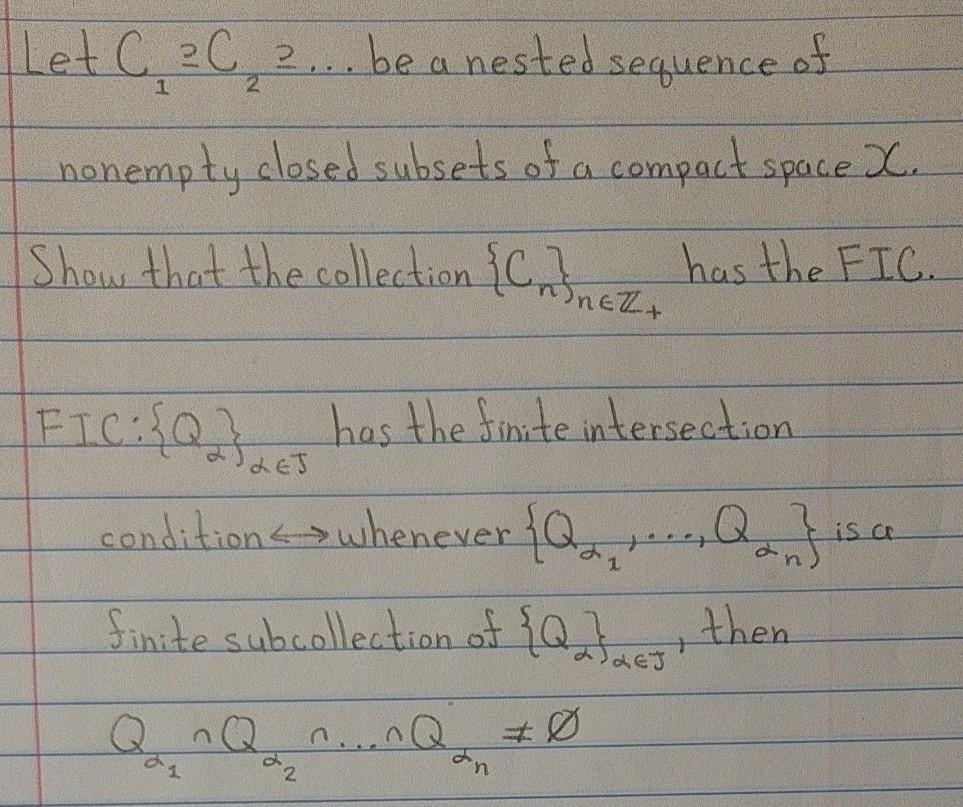 Let C₁ ⊇ C₂ ⊇ ... be a nested sequence of
nonempty closed subsets of a compact space X.
Show that the collection {Cₙ}ₙ∈ℤ₊ has the FIC.
FIC: {Q_α}_α∈J has the finite intersection
condition ↔ whenever {Q_α₁, ..., Q_αₙ} is a
finite subcollection of {Q_α}_α∈J, then
Q_α₁ ∩ Q_α₂ ∩ ... ∩ Q_αₙ ≠ ∅